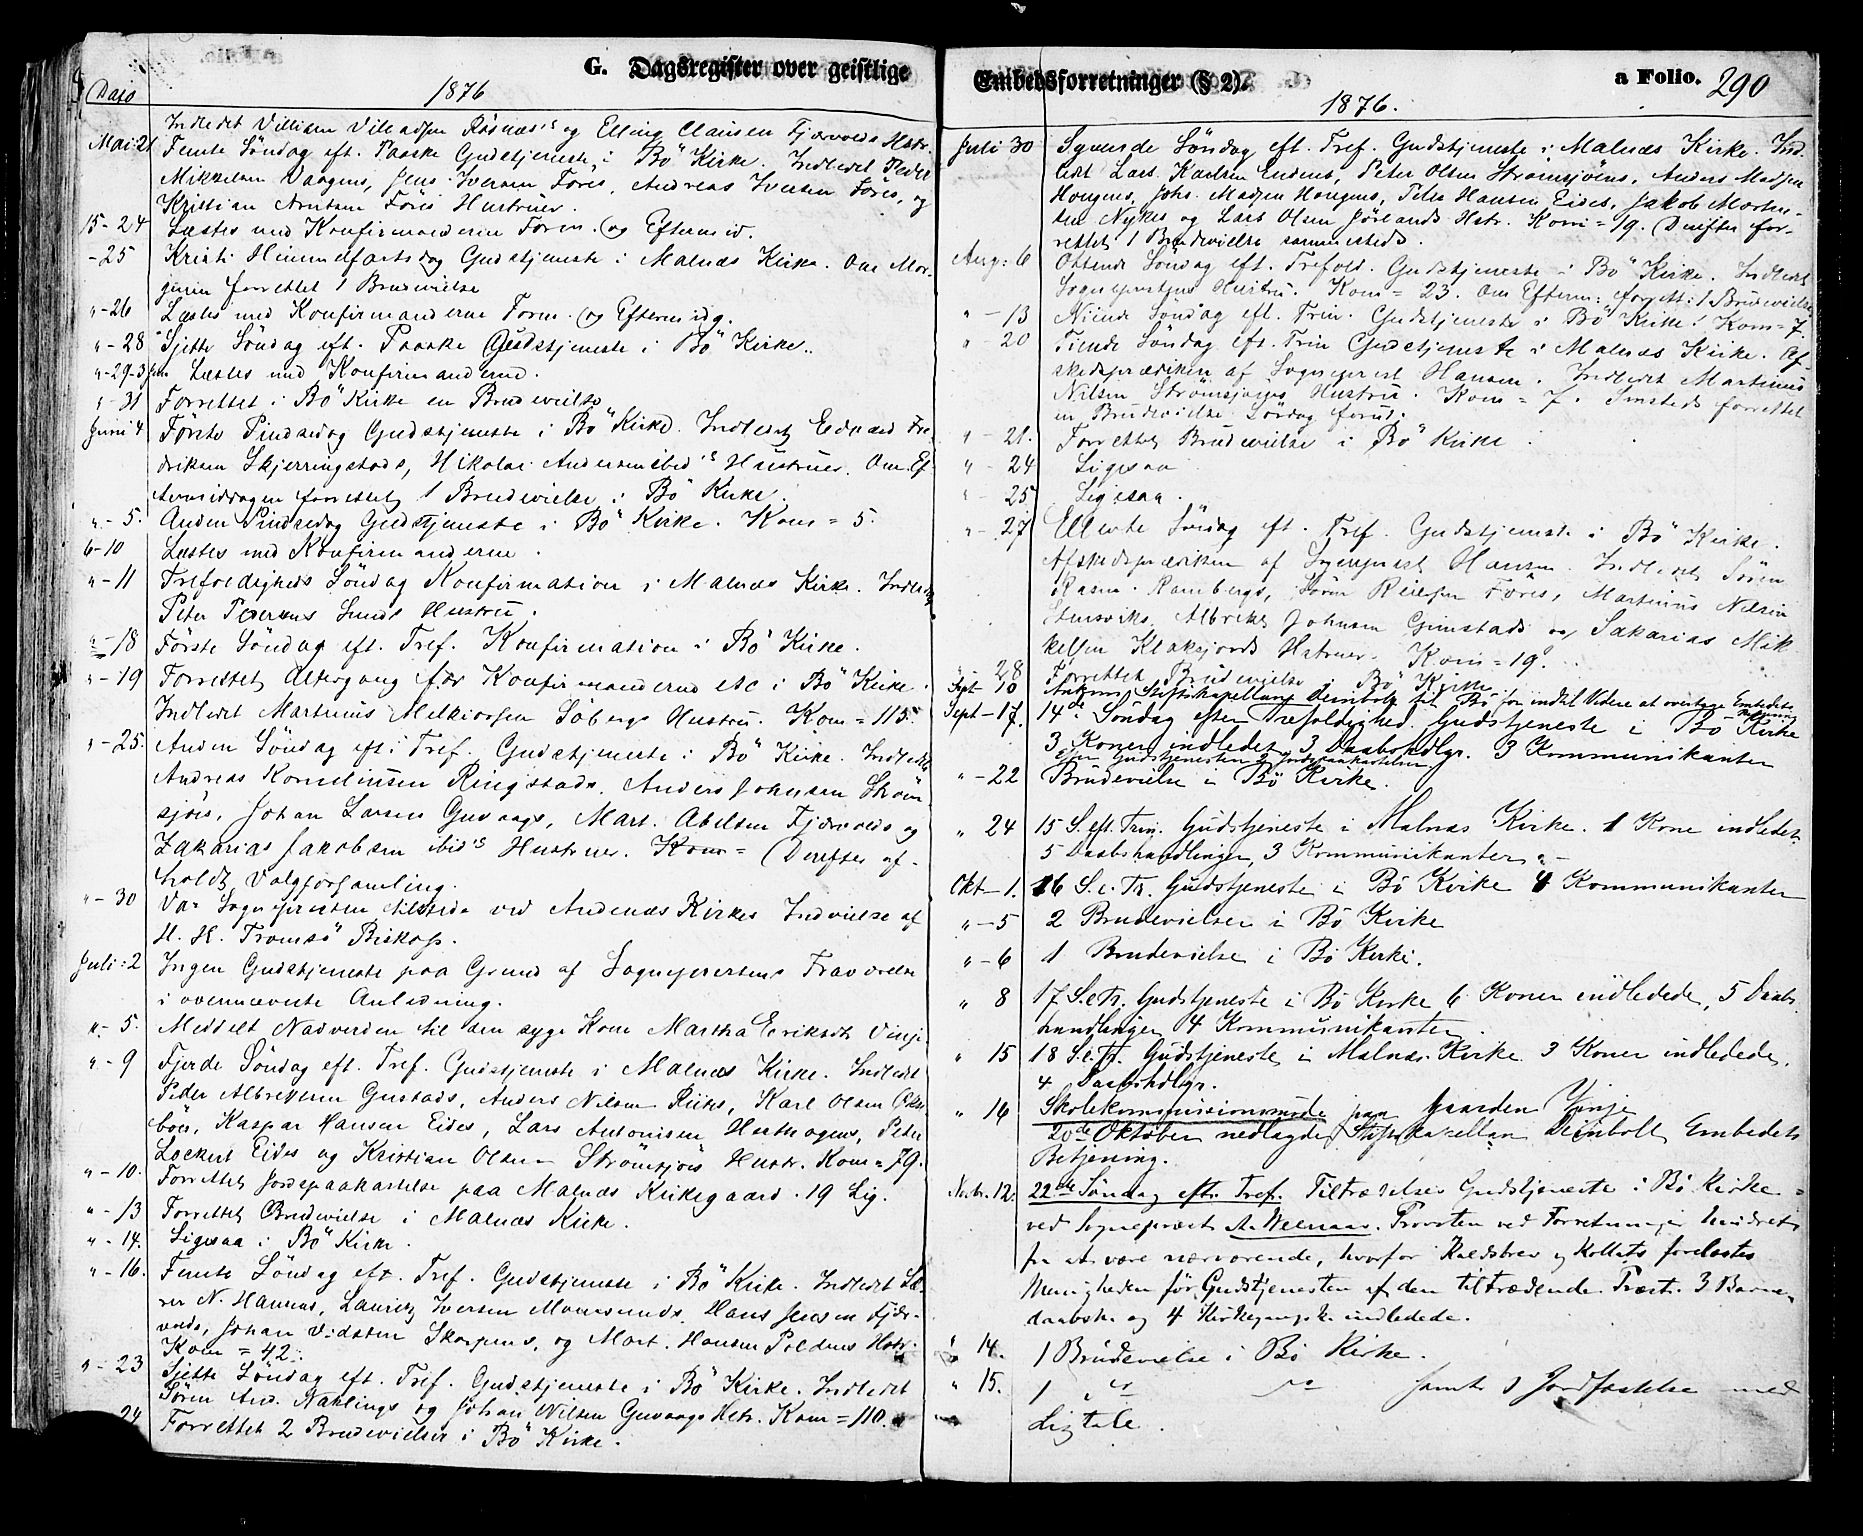 G. Dagsregister over geistlige
Dato
1876
Indledet Villiam Villadsen Røsnæs's og Elling Clausen Fjærvolds Hstr.
Mai 21 Femte Söndag eft. Paaske Gudstjeneste i Bö Kirke. Indledet Peder
Mikkelsen Vaagens, Jens Iversen Föres, Andreas Iversen Föres, og
Kristian Arntsen Föres Hustruer.
15-24 Læstes med Konfirmanderne Form. og Eftermid.
-25 Kristi Himmelfartsdag Gudstjeneste i Malnæs Kirke. Om Mor-
genen forrettet 1 Brudevielse
" -26 Læstes med Konfirmanderne Form. og Eftermidg.
" -28 Sjette Söndag eft. Paaske Gudstjeneste i Bö Kirke.
" -29-3 Læstes med Konfirmanderne.
" -31 Forrettet i Bö Kirke en Brudevielse
Juni 4 Förste Pindsedag Gudstjeneste i Bö Kirke. Indledet Edvard Fre-
driksen Skjerringstads, Nikolai Andersen ibid's Hustruer. Om Ef-
termiddagen forrettet 1 Brudevielse i Bö Kirke.
" -5. Anden Pindsedag Gudstjeneste i Bö Kirke. Kom = 5.
6-10 Læstes med Konfirmanderne.
" -11 Trefoldigheds Söndag Konfirmation i Malnæs Kirke. Indledet
Peter Pedersens Hustru.
" -18 Förste Söndag eft. Tref. Konfirmation i Bö Kirke.
" -19 Forrettet Altergang for Konfirmanderne etc i Bö Kirke.
Indledet Martinus Melkiorsen Söbergs Hustru. Kom = 115.
" -25. Anden Söndag eft. Tref. Gudstjeneste i Bö Kirke. Indledet
Andreas Korneliussen Ringstads, Anders Johnsen Ström-
sjöis, Johan Larsen Guvaags, Mart. Abelsen Fjærvolds og
Zakarias Jakobsen ibid's Hustruer. Kom = (Derefter af-
holdt Valgforsamling.
" -30 Var Sognepresten tilstede ved Andenæs Kirkes Indvielse af
H. H. Tromsö Biskop.
Juli: 2 Ingen Gudstjeneste paa Grund af Sogneprestens Fraværelse
i ovennævnte Anledning.
" -5. Meddelt Nadverden til den syge Kone Martha Eriksdt. Vinje
" -9 Fjerde Söndag eft. Tref. Gudstjeneste i Malnæs Kirke. Indledet
Peder Albrektsen Gustads, Anders Nilsen Karl Olsen
Kaspar Hansen Eides, Lars Antonisen Peter
Lockert Eides og Kristian Olsen Strömsjöis Hustr. Kom = 79.
" -10. Forrettet Jordspaakastelse paa Malnæs Kirkegaard. 19 Lig.
" -13 Forrettet Brudevielse i Malnæs Kirke.
" -14. Ligesaa i Bö Kirke.
" -16. Femte Söndag eft. Tref. Gudstjeneste i Bö Kirke. Indledet Læ-
rer N. Hansens, Lauritz Iversen Hans Jensen Fjær-
volds, Johan Skarpens, og Mart. Hansen Poldens Hstr.
Kom = 42.
" -23 Sjette Söndag eft. Tref. Gudstjeneste i Bö Kirke. Indledet
Sören And. og Johan Nilsen Guvaags Hstr. Kom = 110.
24 Forrettet 2 Brudevielser i Bö Kirke.
Embedsforretninger (§ 2).
a Folio. 290
1876.
Juli 30 Syvende Söndag eft. Tref. Gudstjeneste i Malnæs Kirke. Ind-
ledt Lars Karlsen Peter Olsen Strömsjöins, Anders Madsen
Hougens, Johs. Madsen Hougens, Peter Hansen Eides, Jakob Morten-
sen Nykes og Lars Olsen Hstr. Kom = 19. (Derefter for-
rettet 1 Brudevielse sammesteds.
Aug: 6 Ottende Söndag eft. Trefold. Gudstjeneste i Bö Kirke. Indledet
Sogneprestens Hustru. Kom = 23. Om Efterm: forrett: 1 Brudevielse
" -13 Niende Söndag eft. Trin. Gudstjeneste i Bö Kirke. Kom = 7.
" -20 Tiende Söndag eft. Trin Gudstjeneste i Malnæs Kirke. Af-
skedsprædiken af Sogneprest Hansen. Indledet Martinus
Nilsen Strömsjöins Hustru. Kom = 7. Smsteds forrettet
en Brudevielse Lördag forud.
" -21. Forrettet Brudevielse i Bö Kirke.
" -24 Ligesaa
" -25 Ligesaa.
" -27 Ellevte Söndag eft. Tref. Gudstjeneste i Bö Kirke.
Afskedsprædiken af Sogneprest Hansen. Indledet Sören
Rasm. Rambergs, Sören Föres, Martinus Nilsen
Albrikt Johnsen Gimstads og Sakarias Mik-
kelsen Klaksjords Hstruer. Kom = 19.
28 Forrettet Brudevielse i Bö Kirke.
Sept-10 Ankom Stiftskapellan Deinboll til Bö for indtil Videre at overtage Embedets
Betjening
Sept-17. 14de Söndag efter Trefoldighed. Gudstjeneste i Bö Kirke
3 Koner indledet 3 Daabshdlgr. 3 Kommunikanter
efter Gudstjenesten 2 Jordspaakastelser
" -22 Brudevielse i Bö Kirke.
" 24 15 S. eft. Trin. Gudstjeneste i Malnæs Kirke. 1 Kone indledet.
5 Daabshandlinger, 3 Kommunikanter
Okt-1. 16 S. e. Tr. Gudstjeneste i Bö Kirke 4 Kommunikanter
" -5 2 Brudevielser i Bö Kirke
" -6 1 Brudevielse i Bö Kirke.
" 8 17 S. e. Tr. Gudstjeneste i Bö Kirke 6 Koner indledede, 5 Daabs
handlinger 4 Kommunikanter.
" 15 18 S. e. Tr. Gudstjeneste i Malnæs Kirke 3 Koner indledede,
4 Daabshdlgr.
" 16 Skolekommissionsmöde paa Gaarden Vinje
20de Oktober nedlagde Stiftskapellan Deinboll Embedets
Betjening.
Novbr. 12. 22de Söndag eft. Tref. Tiltrædelses Gudstjeneste i Bö Kirke
ved Sogneprest A. Provsten ved Forretninger hindret
fra at være nærværende, hvorfor Kaldsbrev og Kollats forelæstes
Menigheden för Gudstjenesten af den tiltrædende Præst. 3 Barne-
daabsh. og 4 Kirkegangsk. indledede.
" 14. 1 Brudevielse i Bö Kirke.
" 15. 1 " " samt 1 Jordfæstelse med
Ligtale.